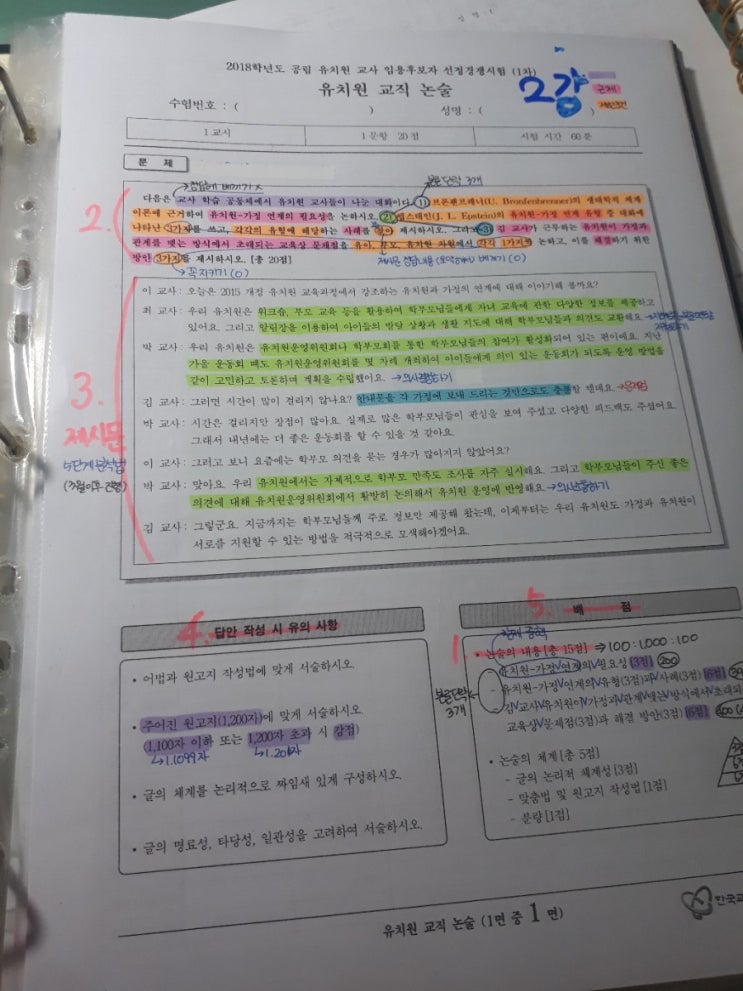 2018학년도 공립 유치원 교사 임용후보자 선정경쟁시험 (1차)
유치원 교직 논술
2강
수험번호 : ( ) 성명 : ( )
1교시 1문항 20점 시험 시간 60분
문 제
본문단락 3개
2.
다음은 교사 학습 공동체에서 유치원 교사들이 나눈 대화이다. 1) 브론펜브레너(U. Bronfenbrenner)의 생태학적 체계
이론에 근거하여 유치원-가정 연계의 필요성을 논하시오. 2) 엡스테인(J. L. Epstein)의 유치원-가정 연계 유형 중 대화에
나타난 3가지를 쓰고, 각각의 유형에 해당하는 사례를 찾아 제시하시오. 그리고 3) 김 교사가 근무하는 유치원이 가정과
관계를 맺는 방식에서 초래되는 교육상 문제점을 유아, 부모, 유치원 차원에서 각각 1가지씩 논하고, 이를 해결하기 위한
방안 3가지를 제시하시오. [총 20점]
꼭지키기(O)
이 교사 : 오늘은 2015 개정 유치원 교육과정에서 강조하는 유치원과 가정의 연계에 대해 이야기해 볼까요?
최 교사 : 우리 유치원은 워크숍, 부모 교육 등을 활용하여 학부모님들에게 자녀 교육에 관한 다양한 정보를 제공하고
있어요. 그리고 알림장을 이용하여 아이들의 발달 상황과 생활 지도에 대해 학부모님들과 의견도 교환해요.
박 교사 : 우리 유치원은 유치원운영위원회나 학부모회를 통한 학부모님들의 참여가 활성화되어 있는 편이에요. 지난
가을 운동회 때도 유치원운영위원회를 몇 차례 개최하여 아이들에게 의미 있는 운동회가 되도록 운영 방법을
같이 고민하고 토론하며 계획을 수립했어요. →의사결정하기
김 교사 : 그러면 시간이 많이 걸리지 않나요? 안내문을 각 가정에 보내 드리는 것만으로도 충분할 텐데요.
박 교사 : 시간은 걸리지만 장점이 많아요. 실제로 많은 학부모님들이 관심을 보여 주셨고 다양한 피드백도 주셨어요.
그래서 내년에는 더 좋은 운동회를 할 수 있을 것 같아요.
이 교사 : 그러고 보니 요즘에는 학부모 의견을 묻는 경우가 많아지지 않았어요?
박 교사 : 맞아요. 우리 유치원에서는 자체적으로 학부모 만족도 조사를 자주 실시해요. 그리고 학부모님들이 주신 좋은
의견에 대해 유치원운영위원회에서 활발히 논의해서 유치원 운영에 반영해요.
김 교사 : 그렇군요. 지금까지는 학부모님들께 주로 정보만 제공해 왔는데, 이제부터는 우리 유치원도 가정과 유치원이
서로를 지원할 수 있는 방법을 적극적으로 모색해야겠어요.
3.
제시문
4. 답안 작성 시 유의 사항
• 어법과 원고지 작성법에 맞게 서술하시오.
• 주어진 원고지(1,200자)에 맞게 서술하시오.
(1,100자 이하 또는 1,200자 초과 시 감점)
↳1.1099자 ↳1.201자
• 글의 체계를 논리적으로 짜임새 있게 구성하시오.
• 글의 명료성, 타당성, 일관성을 고려하여 서술하시오.
5. 배 점
1. • 논술의 내용 [총 15점] ⇒ 100:1,000:100
- 유치원-가정 연계의 필요성 [3점] 200
- 유치원-가정 연계의 유형(3점)과 사례(3점) [6점]
- 김 교사 유치원이 가정과 관계 맺는 방식에서 초래되
교육상 문제점(3점)과 해결 방안(3점) [6점]
본문단락 3개
• 논술의 체계 [총 5점]
- 글의 논리적 체계성 [3점]
- 맞춤법 및 원고지 작성법 [1점]
- 분량 [1점]
유치원 교직 논술 (1면 중 1 면)
한국교